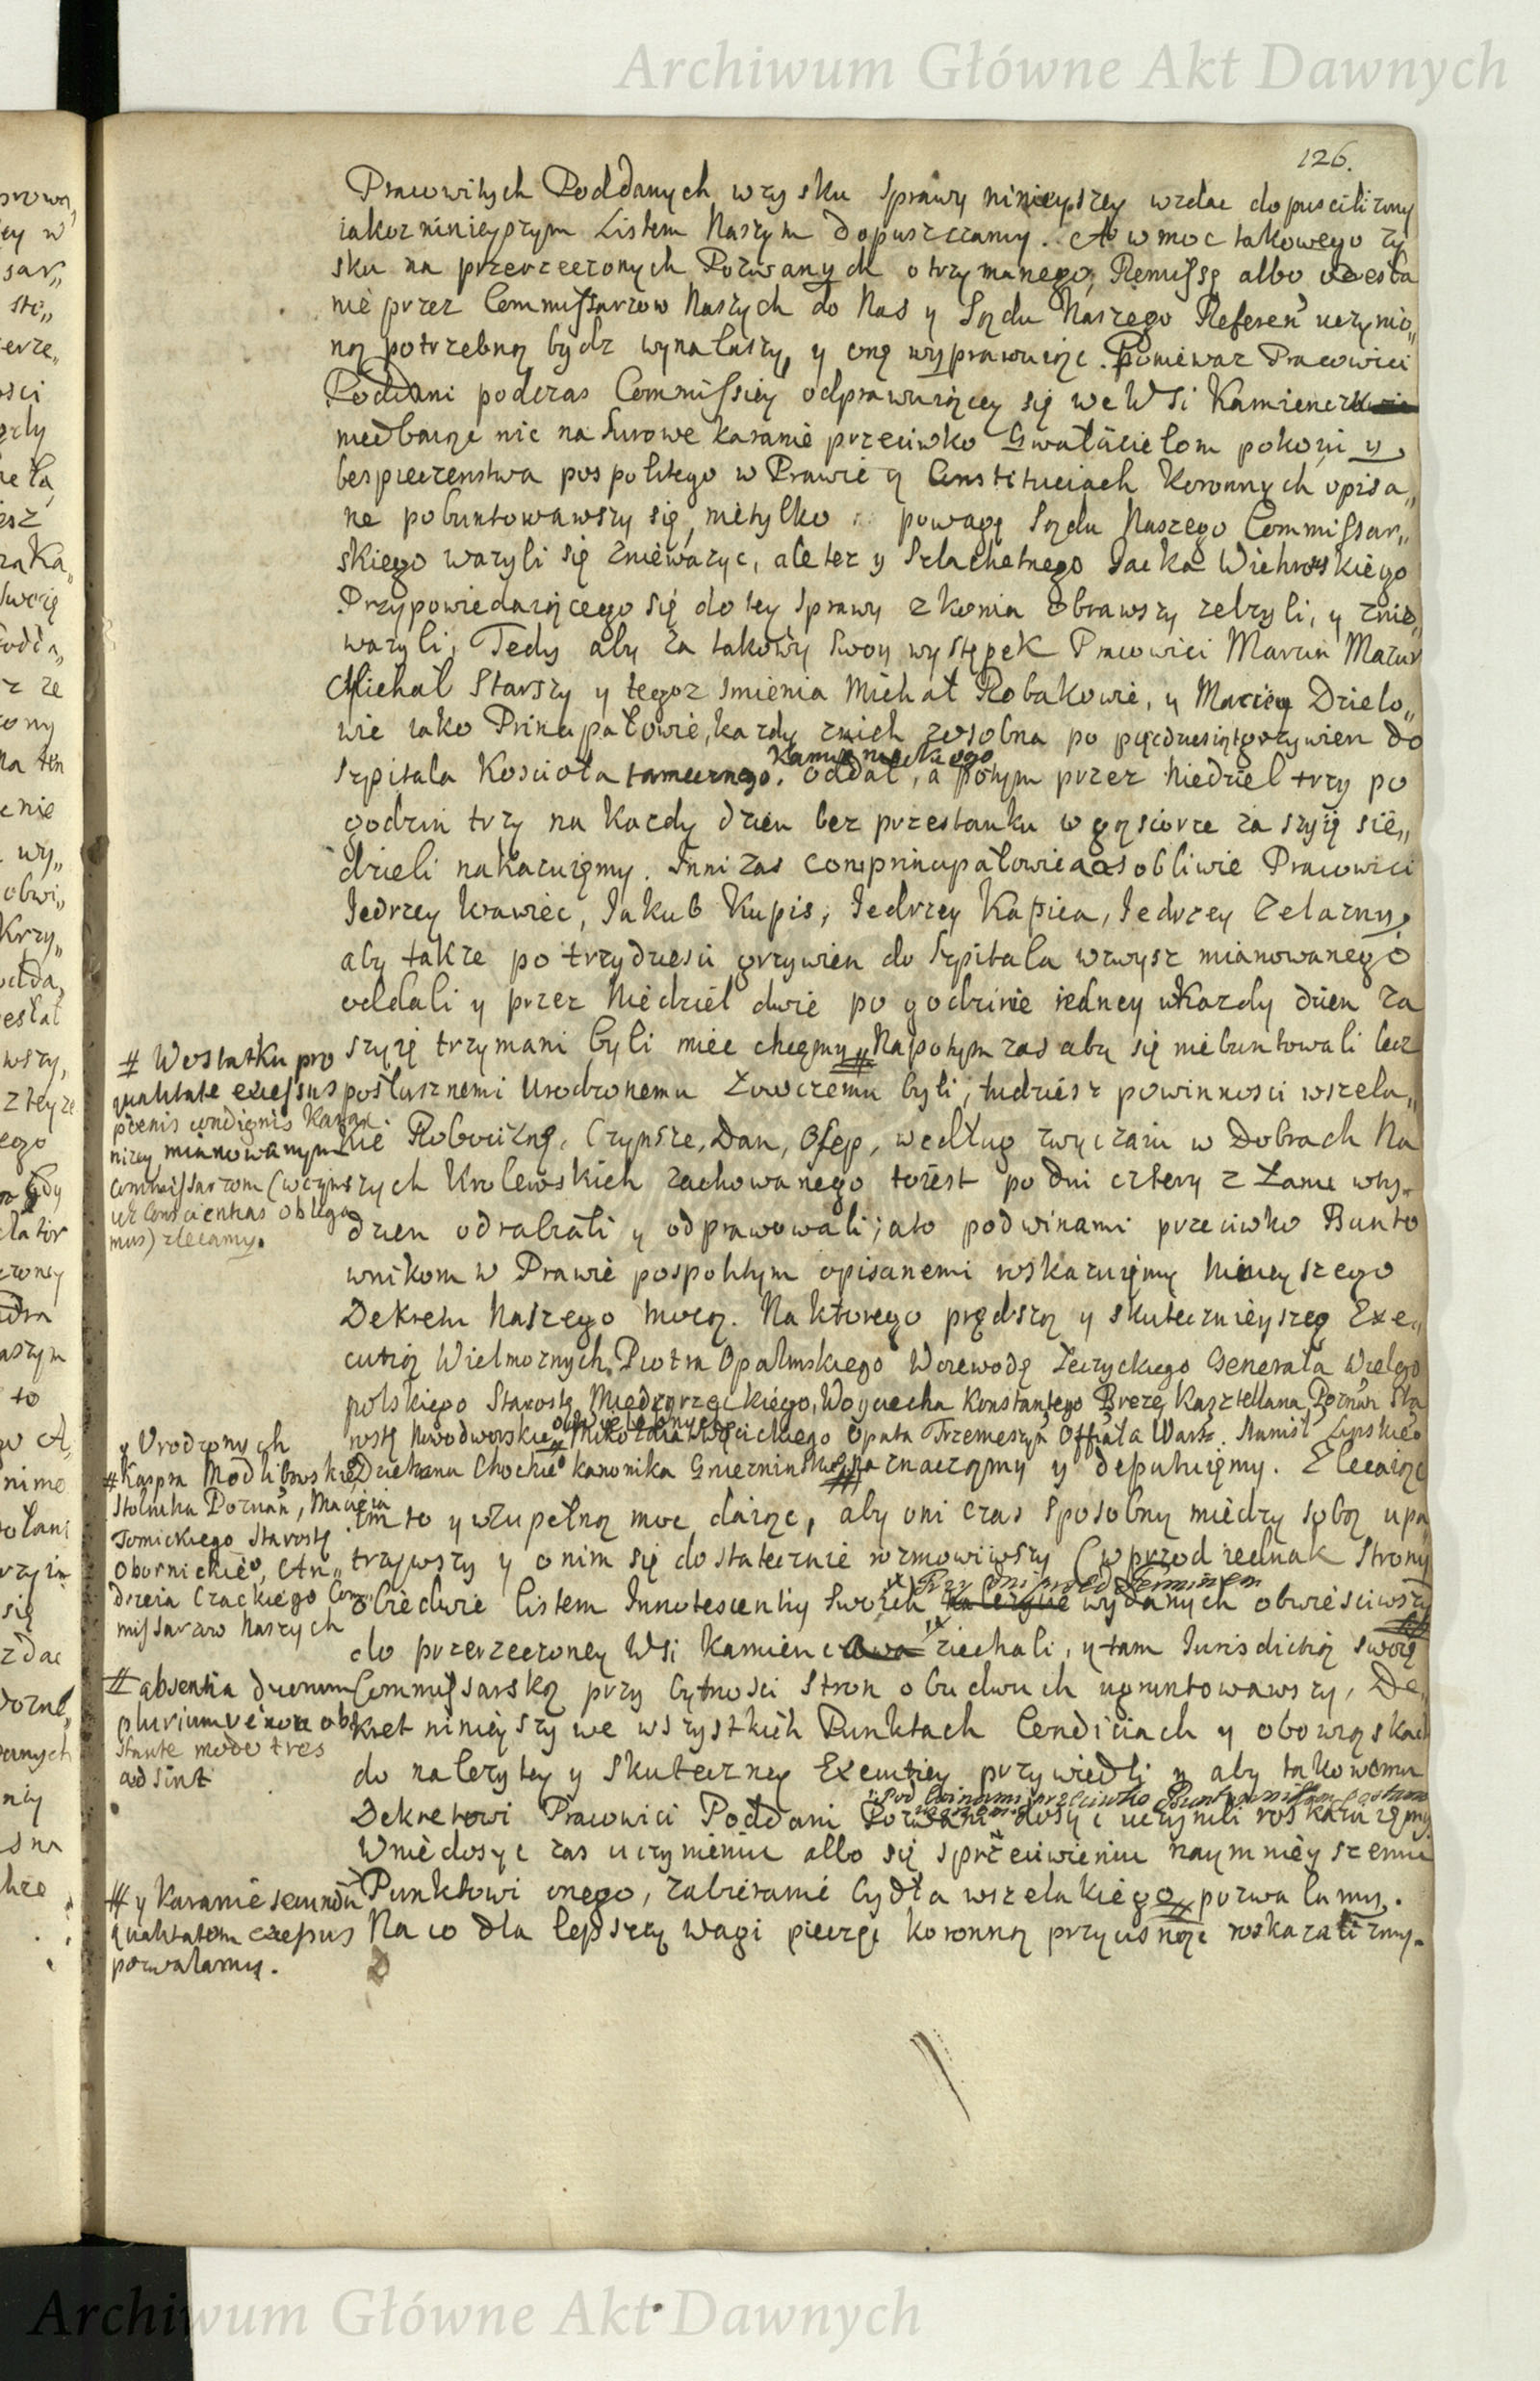 Archiwum Główne Akt Dawnych
126.
Pracowitych Poddanych w zysku sprawy ninieyszey wzdac dopuscilizmy
iakoz ninieyszym Listem Naszym dopuszczamy. A w moc takowego zy
sku na przerzeczonych Pozwanych otrzymanego, Remissę albo odesła
nie przez Commissarzow Naszych do Nas y Sądu Naszego Referen uczynio„
ną potrzebną bydz wynalaszy, y onę wyprawuiąc. Poniewaz Pracowici
Poddani podczas Commissiey odprawuiącey się we Wsi Kamiencz
niedbaiąc nic na surowe karanie przeciwko Gwałcicielom pokoiu y
bespieczenstwa pospolitego w Prawie y Constituciach Koronnych opisa„
ne pobuntowawszy się, nietylko powagę Sądu Naszego Commissar„
skiego wazyli się zniewazyc, ale tez y Szlachetnego Jacka Wichrowskiego
Przypowiedaiącego się do tey sprawy z konia obrawszy zelzyli, y znie„
wazyli, Tedy aby za takowy swoy występek Pracowici Marcin Mazur
Michał Starszy y tegoz Imienia Michał Robakowie, y Maciey Dzielo„
wie iako Principałowie, kazdy znich zosobna po pięcdziesiąt grzywien do
Kamienieckiego
Szpitala Koscioła tamecznego. oddał, a potym przez Niedziel trzy po
godzin trzy na kazdy dzien bez przestanku w gąsiorze za szyię sie„
dzieli nakazuięmy. Inni zas comprincipałowie a osobliwie Pracowici
Jedrzey Kawiec, Jakub Kupis, Jedrzey Kapica, Jedrzey Zelazny,
aby takze po trzydziesci grzywien do Szpitala wzwysz mianowanego
oddali y przez Niedziel dwie po godzinie iedney w kazdy dzien za
szyię trzymani byli miec chcęmy # Napotym zas aby się niebuntowali lecz
posłusznemi Urodzonemu Łowczemu byli, tudziesz powinnosci wszela„
kie Robociznę, Czynsze, Dan, Osep, według zwyczaiu w Dobrach Na
szych Krolewskich zachowanego toiest po dni cztery z Łanu wty„
dzien odrabiali y odprawowali; a to pod winami przeciwko Bunto
wnikom w Prawie pospolitym opisanemi roskazuięmy Ninieyszego
Dekretu Naszego mocą. Na ktorego prędszą y skutecznieyszą Exe„
cutią Wielmoznych Piotra Opalinskiego Woiewodę Łęczyckiego Generała Wielgo
polskiego Starostę Międzyrzeckiego, Woyciecha Konstantego Brezę Kasztellana Poznan Sta
rostę Nowodworskiego # Mikołaia Opata Trzemeszyn Offiała Warsz. Stanisł Lipskieo
Dziekana Chockieo kanonika Gnieznin znaczamy y deputuięmy. Zlecaiąc
im to y wzupełną moc daiąc, aby oni czas sposobny miedzy sobą upa
trzywszy y o nim się dostatecznie rozmowiwszy (wprzod iednak Strony
Przy Dni przed Terminem
obiedwie Listem Innotescentiy swoich należycie wydanych obwiesciwszy
do przerzeczoney Wsi Kamien ziechali, y tam Jurisdictią swoię
Commissarską przy bytnosci Stron obudwuch ugruntowawszy, De„
kret ninieyszy we wszystkich Punktach Condiciach y obowiąskach
do nalezytey y skuteczney Execucey przywiedli y aby takowemu
Pod winami przeciwko Buntownikom
Dekretowi Pracowici Poddani Pozwani dosyc uczynili roskazuięmy
Wniedosyc zas uczynieniu albo się sprzeciwieniu naymnieyszemu
Punktowi onego, zabieranie bydła wszelakiego # pozwalamy.
Na co dla lepszey wagi pieczęc koronną przycisnąc roskazalizmy.
# Wostatku pro
qualitate excessus
poenis condignis karan
nizey mianowanym
Commissarzom (w czym
ich Conscientias obliga
mus) zlecamy.
y Urodzonych
# Kaspra Modlibowskieo
Stolnika Poznan, Macieia
Tomickiego Starostę
Obornickieo, An„
drzeia Czackiego Com„
missarzow Naszych
# absentia duorum
plurium ve non ob
stante modo tres
adsint
# y Karanie secundum
qualitatem excessus
pozwalamy.
Archiwum Główne Akt Dawnych